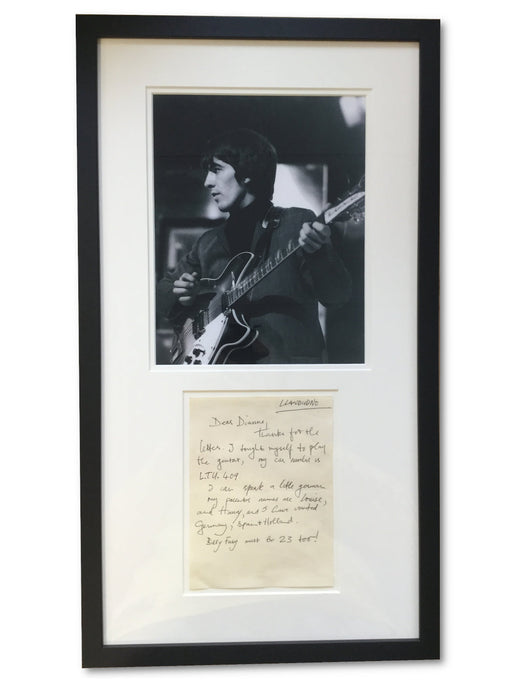 LLANDUDNO
Dear Dianne,
Thanks for the
letter. I taught myself to play
the guitar, my car number is
LTU 409.
I can speak a little german
my parents names are Louise,
and Harry, and I have visited
Germany, Spain + Holland.
Billy Fury must be 23 too!